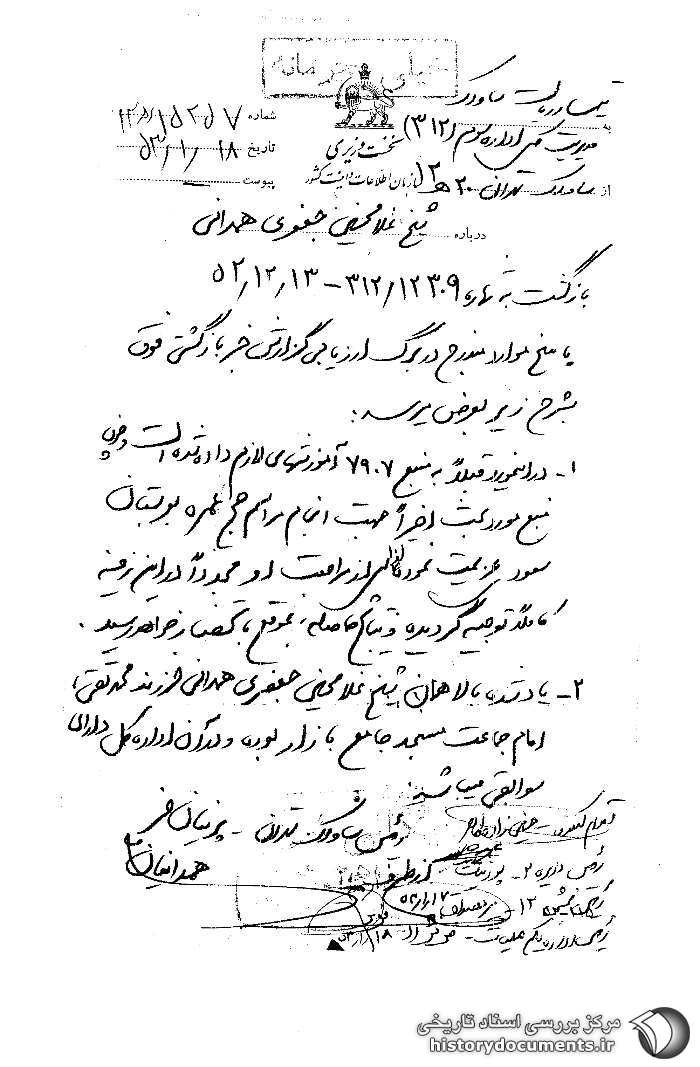 خیلی محرمانه
تیمسار ریاست ساواک
به مدیریت کل اداره سوم (۳۱۲)
نخست وزیری
سازمان اطلاعات و امنیت کشور
از ساواک تهران ۲۰ ه ۲
شماره ۱۵۲۵۷
تاریخ ۵۳/۱/۱۸
پیوست
درباره شیخ غلامحسین جعفری همدانی
بازگشت به شماره ۳۱۲/۱۲۳۰۹ - ۵۲٫۱۲٫۱۳
پاسخ موارد مندرج در برگ ارزیابی گزارش خبر بازگشتی فوق
بشرح زیر بعرض میرسد:
۱- در اینمورد قبلاً به منبع ۷۹۰۷ آموزشهای لازم داده شده است و چون
منبع مورد بحث اخیراً جهت انجام مراسم حج عمره به عربستان
سعودی عزیمت نموده پس از مراجعت او مجدداً در این زمینه
کاملاً توجیه گردیده و نتایج حاصله، بموقع باستحضار خواهد رسید.
۲- یاد شده بالا همان شیخ غلامحسین جعفری همدانی فرزند محمدتقی،
امام جماعت مسجد جامع بازار بوده و در آن اداره کل دارای
سوابقی میباشد.
رئیس ساواک تهران - پرنیان‌فر
اقدام کننده -
رئیس دایره ۲-
رئیس بخش ۱۲- ۱۷
رئیس اداره یکم عملیات - ۱۸
مرکز بررسی اسناد تاریخی
historydocuments.ir